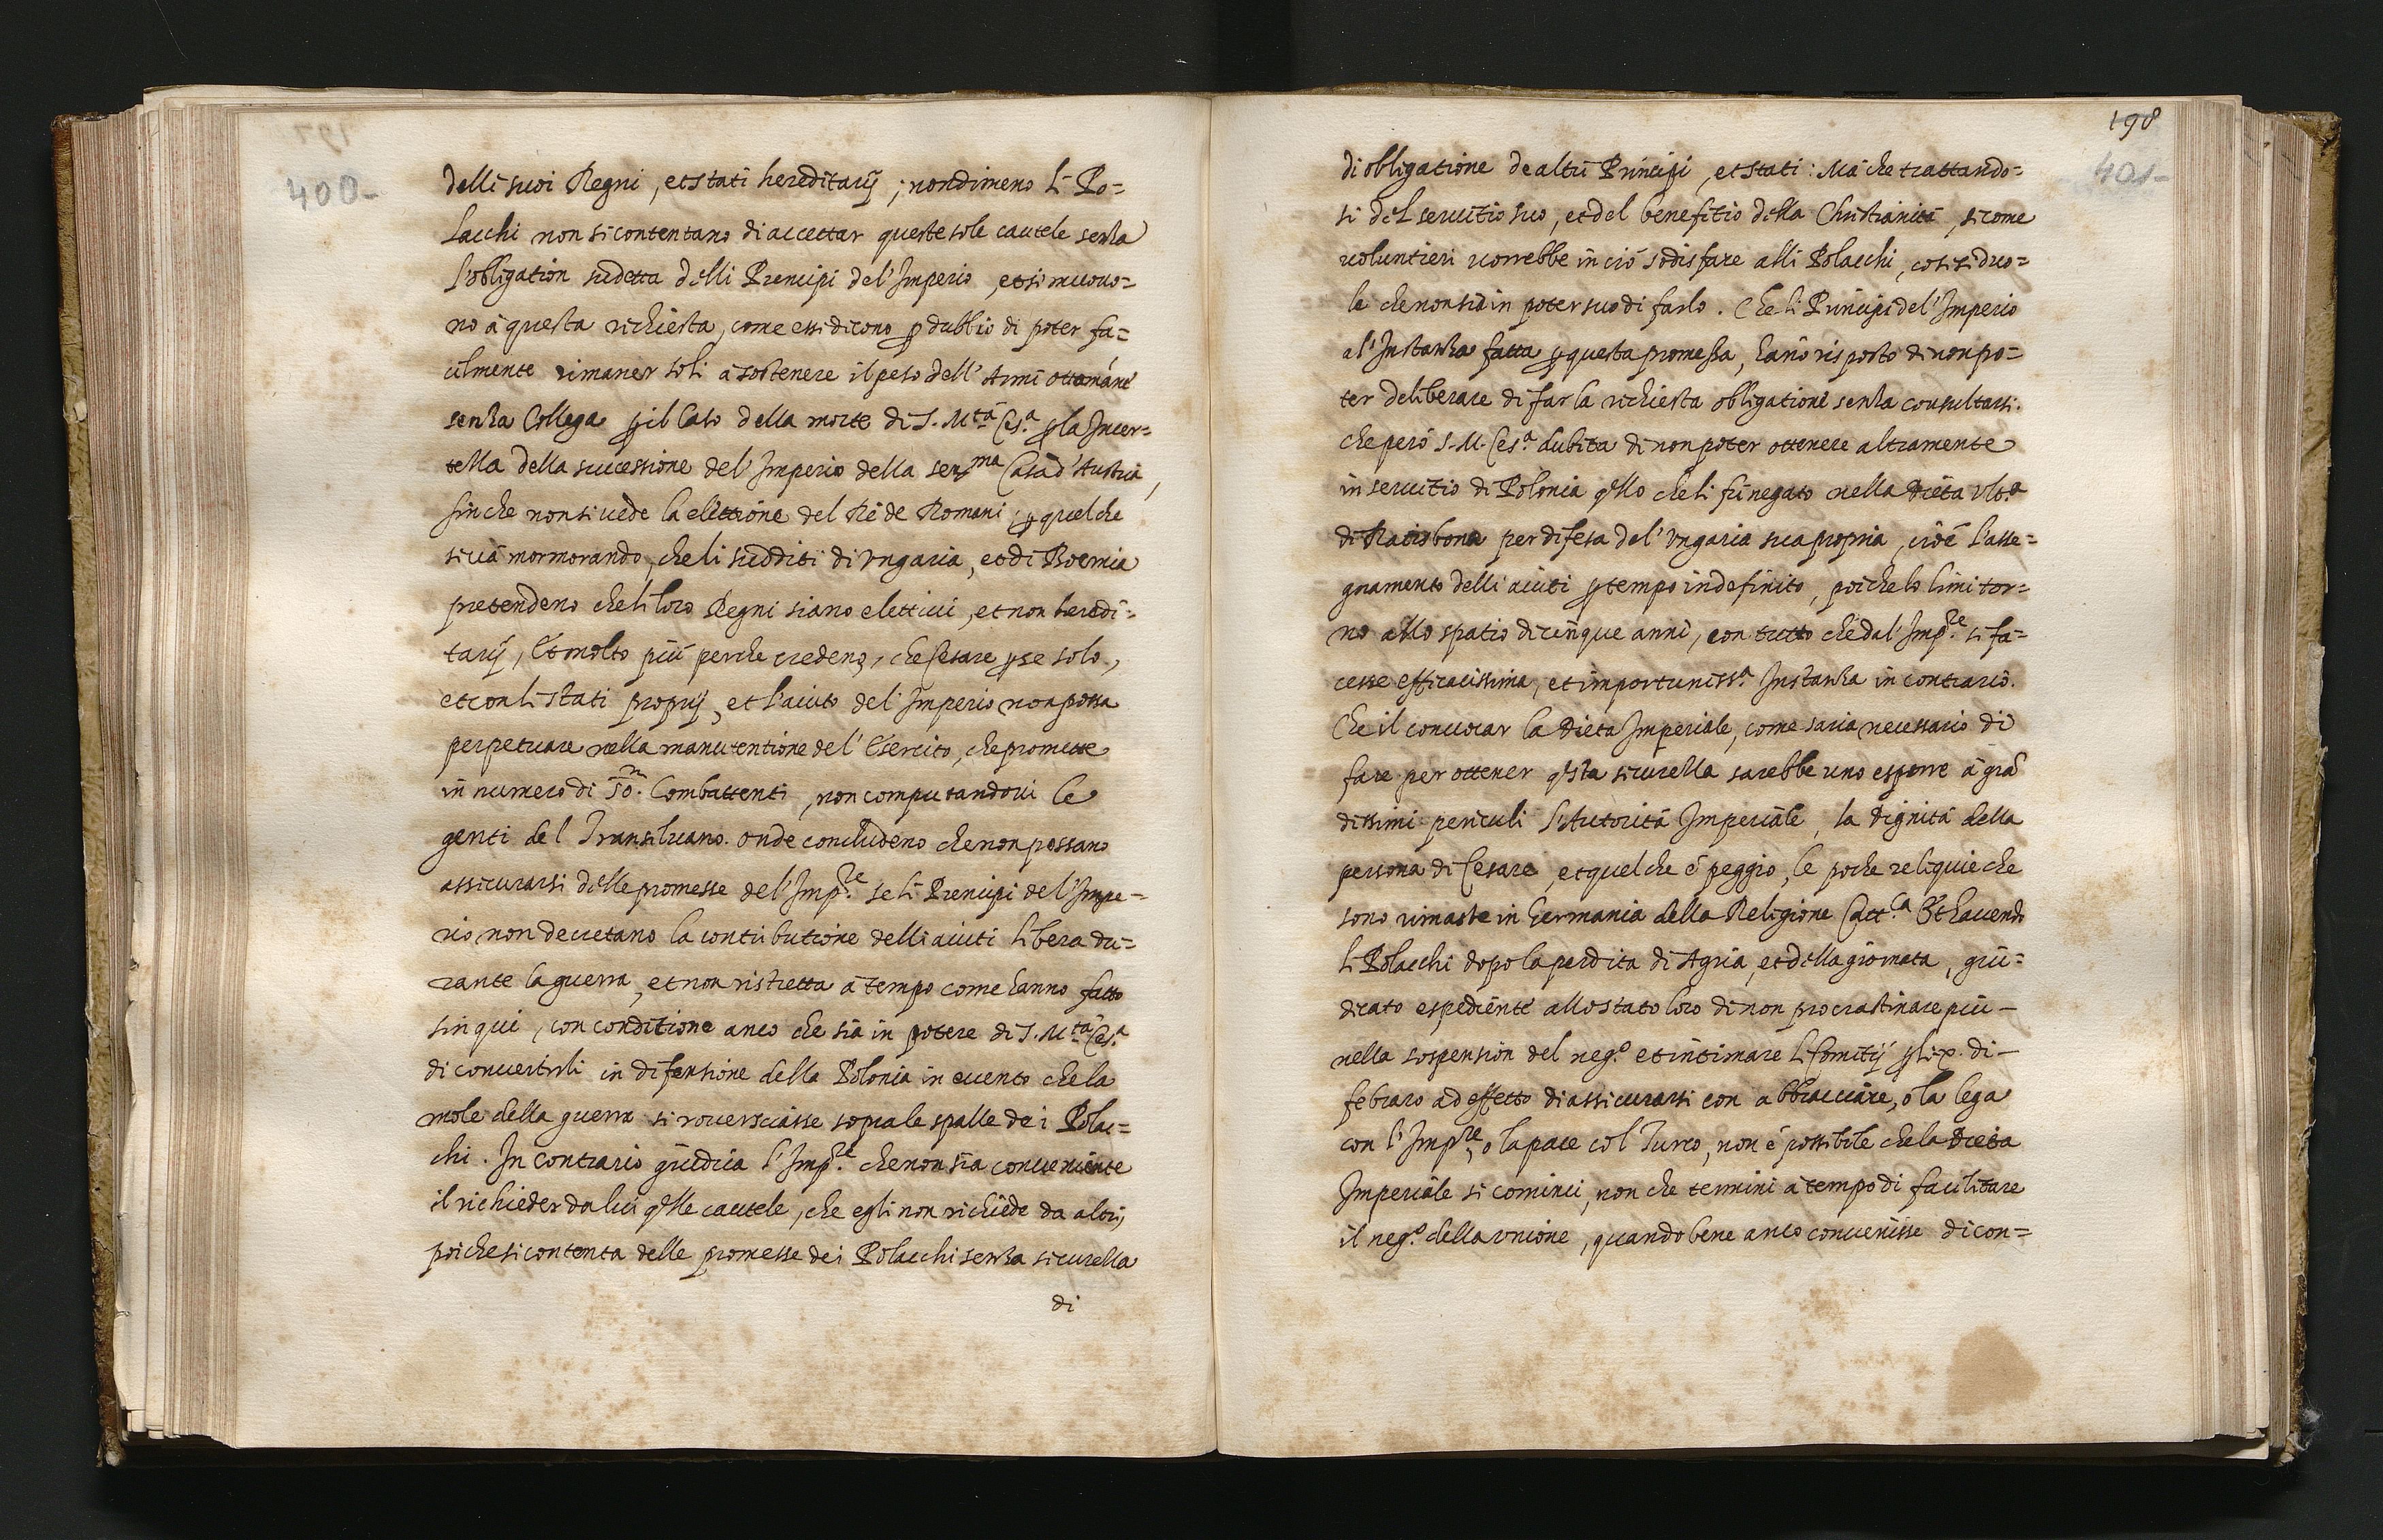 400-
delli suoi Regni, et stati hereditarij; nondimeno li Po=
lacchi non si contentano di accettar queste sole cautele senza
l'obligation sudetta delli Prencipi del'Imperio, et si muouo=
no à questa richiesta, come essi dicono p dubbio di poter fa=
cilmente rimaner soli à sostenere il peso dell'Armi ottomane
senza Collega p il Caso della morte di S. M.tà Ces.a p la Incer=
tezza della successione del'Imperio della ser.ma Casa d'Austria,
sin che non si uede la elettione del Rè de Romani, p quel che
si uà mormorando, che li sudditi di Vngaria, et di Boemia
pretendeno che li loro Regni siano elettiui, et non heredi=
tarij, Et molto più perche credeno, che Cesare p se solo,
et con li stati proprij, et l'aiuto del'Imperio non possa
perpetuare nella manutentione del'Esercito, che promette
in numero di 50.m Combattenti, non computandoui le
genti del Transiluano. onde concludeno che non possano
assicurarsi delle promesse del'Imp.re se li Prencipi del'Impe=
rio non decretano la contributione delli aiuti libera du=
rante la guerra, et non ristretta à tempo come hanno fatto
sin qui, con conditione anco che sia in potere di S. M.tà Ces.a
di conuertirli in difensione della Polonia in euento che la
mole della guerra si rouersciasse sopra le spalle dei Polac=
chi. In contrario giudica l'Imp.re che non sia conueniente
il richieder da lui q'lle cautele, che egli non richiede da altri,
poiche si contenta delle promesse dei Polacchi senza sicurezza
di
198
401-
di obligatione de altri Principi, et stati: Mà che trattando=
si del seruitio suo, et del benefitio della Christianità, si come
uoluntieri uorrebbe in ciò sodisfare alli Polacchi, così si duo=
le che non sia in poter suo di farlo. Che li Principi del'Imperio
al'Instanza fatta p questa promessa, hanō risposto di non po=
ter deliberare di far la richiesta obligatione senza consultarsi.
che però S. M. Ces.a dubita di non poter ottenere altramente
in seruitio di Polonia q'llo che li fù negato nella Dieta vlt.a
di Ratisbona per difesa del'Vngaria sua propria, cioè l'asse=
gnamento delli aiuti p tempo indefinito, poiche lo limitor=
no allo spatio di cinque anni, con tutto che dal'Imp.re si fa=
cesse efficacissima, et importuniss.a Instanza in contrario.
Che il conuocar la Dieta Imperiale, come saria necessario di
fare per ottener q'sta sicurezza sarebbe uno esporre à grā
dissimi periculi l'Autorità Imperiale, la dignità della
persona di Cesare, et quel che è peggio, le poche reliquie che
sono rimaste in Germania della Religione Catt.ca Et hauendo
li Polacchi dopo la perdita di Agria, et della giornata, giu=
dicato espediente allo stato loro di non procrastinare più -
nella sospension del neg.o et intimare li Comitij p li x. di -
febraro ad effetto di assicurarsi con abbracciare, ò la lega
con l'Imp.re, o la pace col Turco, non è possibile che la Dieta
Imperiale si cominci, non che termini à tempo di facilitare
il neg.o della vnione, quando bene anco conuenisse di con=